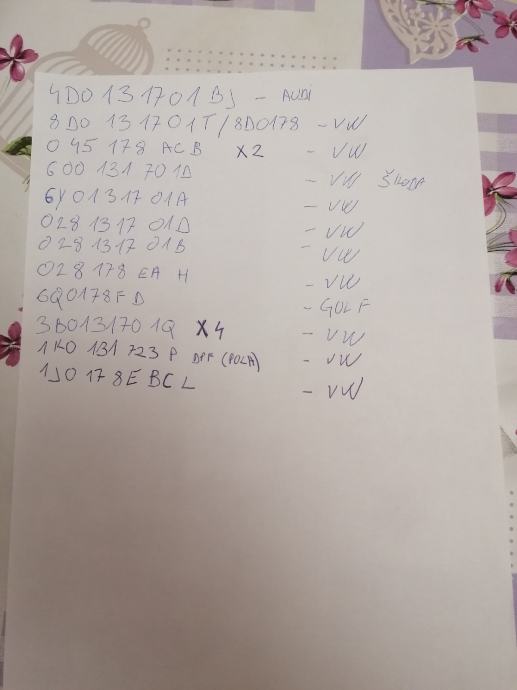 4D0 131701 BJ - AUDI
8D0 131701T/8D0178 - VW
045 178 ACB X2 - VW
600 131 701D - VW ŠKODA
6Y0131701A - VW
028 1317 01D - VW
028 1317 01B - VW
028 178 EA H - VW
6Q0178FD - GOLF
3B0131701Q X4 - VW
1K0 131 723 P DPF (POLA) - VW
1J0 178E BCL - VW